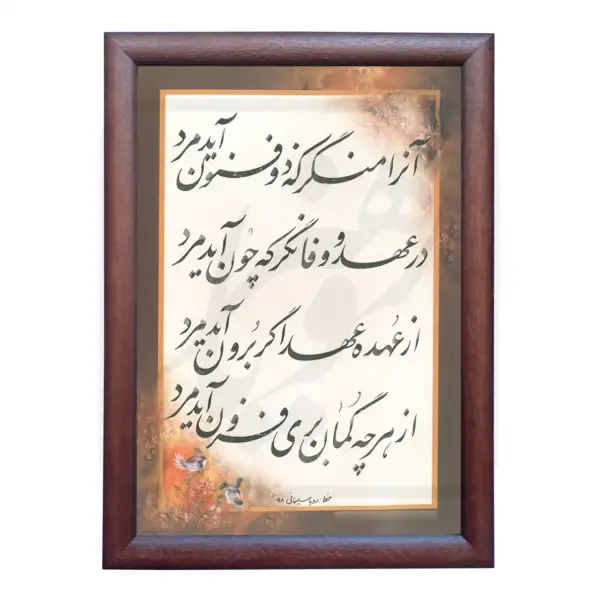 آنرا منگر که ذوفنون آید مرد
در عهد و وفا نگر که چون آید مرد
از عهده عهد اگر برون آید مرد
از هر چه گمان بری فزون آید مرد
خط: رویا سلیمانی ۹۸